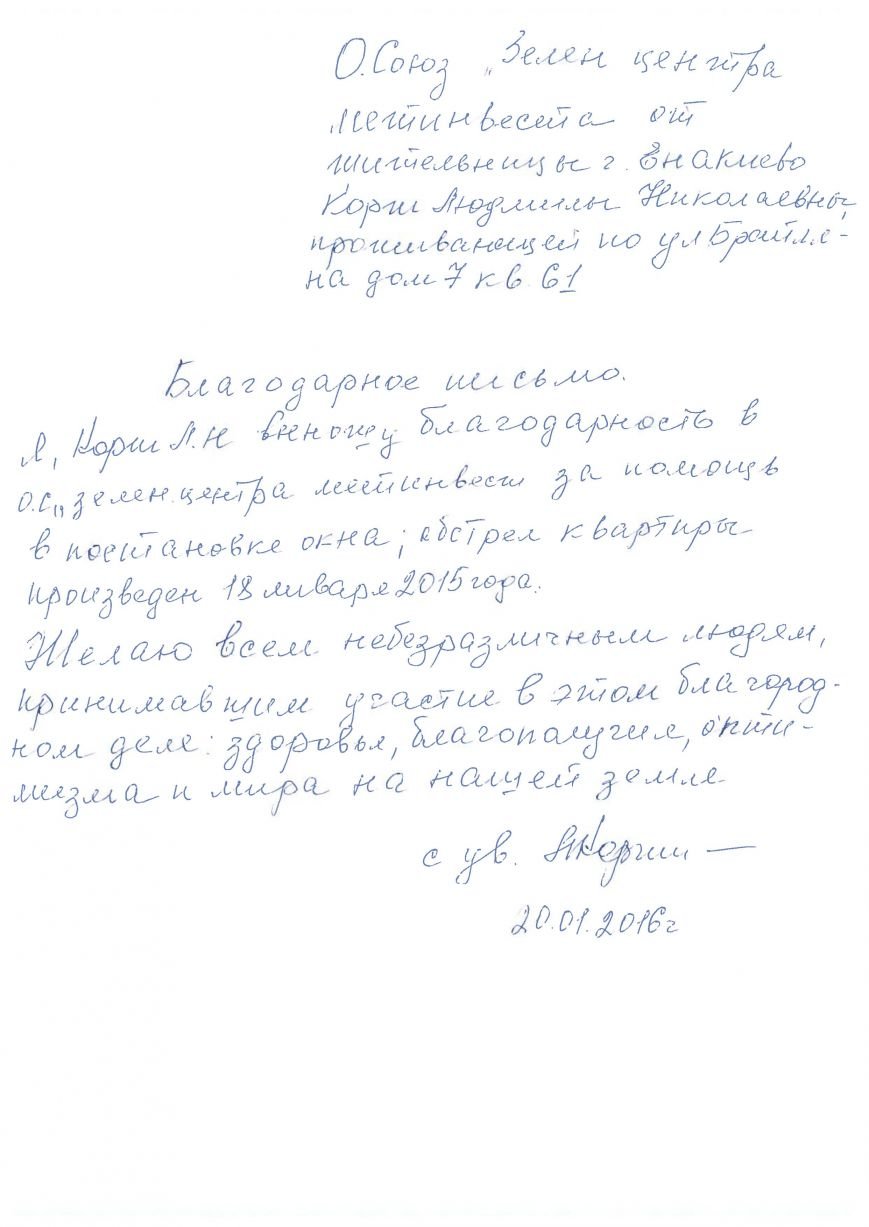 О.Союз „Зелен центра
метинвеста от
жительницы г. Енакиево
Корж Людмилы Николаевны,
проживающей по ул
на дом 7 кв. 61
Благодарное письмо.
Я, Корж Л.Н выношу благодарность в
о.с„ зелен.центра метинвест за помощь
в постановке окна; обстрел квартиры
произведен 18 января 2015 года.
Желаю всем небезразличным людям,
принимавшим участие в этом благород-
ном деле: здоровья, благополучия, опти-
мизма и мира на нашей земле
с ув.
20.01.2016г